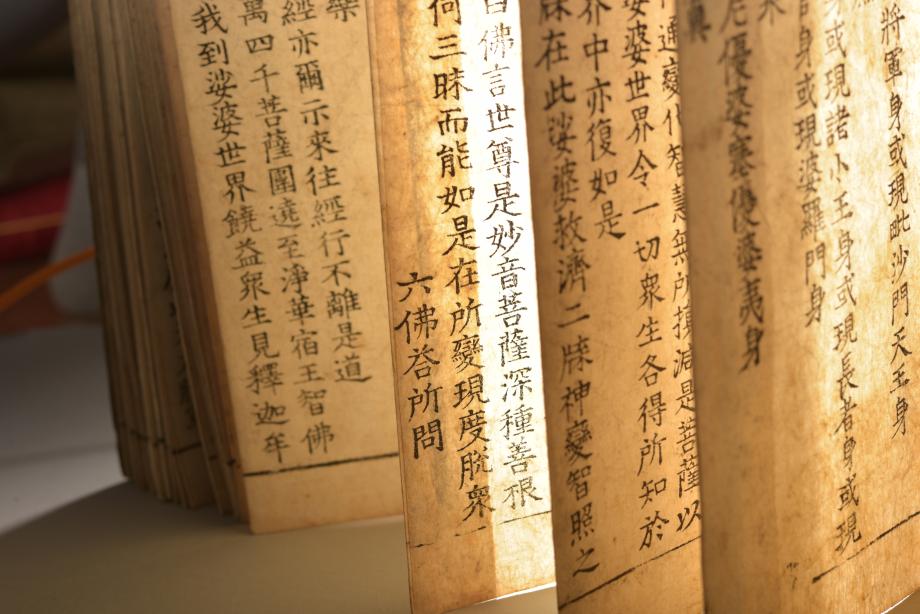 將軍身或現毗沙門天王身
身或現諸小王身或現長者身或現
身或現婆羅門身
尼優婆塞優婆夷身
通變化智慧無所損減是菩薩以
娑婆世界令一切衆生各得所知於
界中亦復如是
在此娑婆救濟二牒神變智照之
佛言世尊是妙音菩薩深種善根
何三昧而能如是在所變現度脫衆
六佛答所問
樂
經亦爾示來往經行不離是道
萬四千菩薩圍遶至淨華宿王智佛
我到娑婆世界饒益衆生見釋迦牟